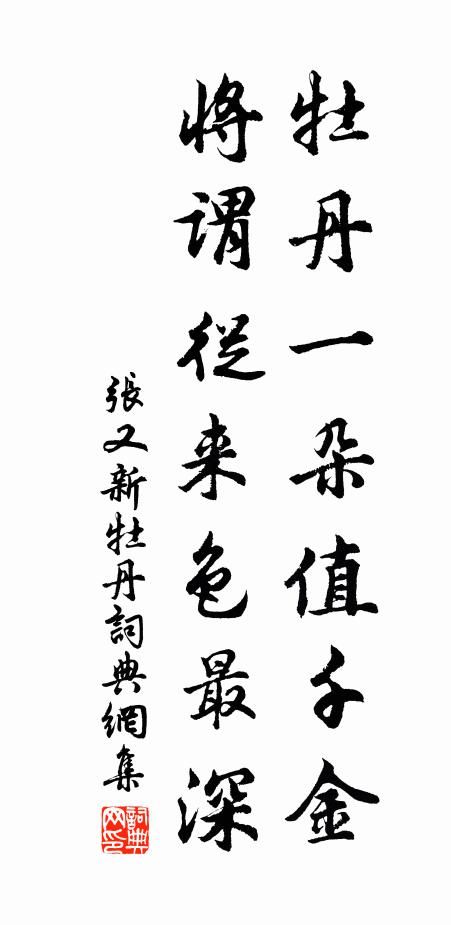 牡丹一朵值千金
将謂從来色最深
張又新牡丹詞典網集
詞典网印